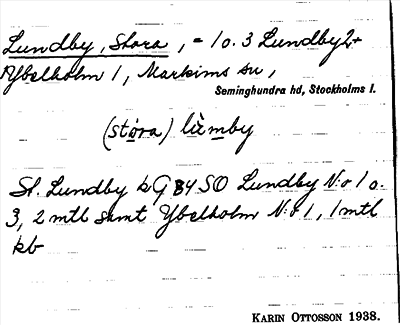 Lundby, Stora, = 1 o. 3 Lundby 2 +
Ybelholm 1, Markims sn,
Seminghundra hd, Stockholms l.
(stóra) lùmby
St. Lundby k G B4 SO Lundby N:o 1 o.
3, 2 mtl samt Ybelholm N:o 1, 1 mtl
kb
KARIN OTTOSSON 1938.